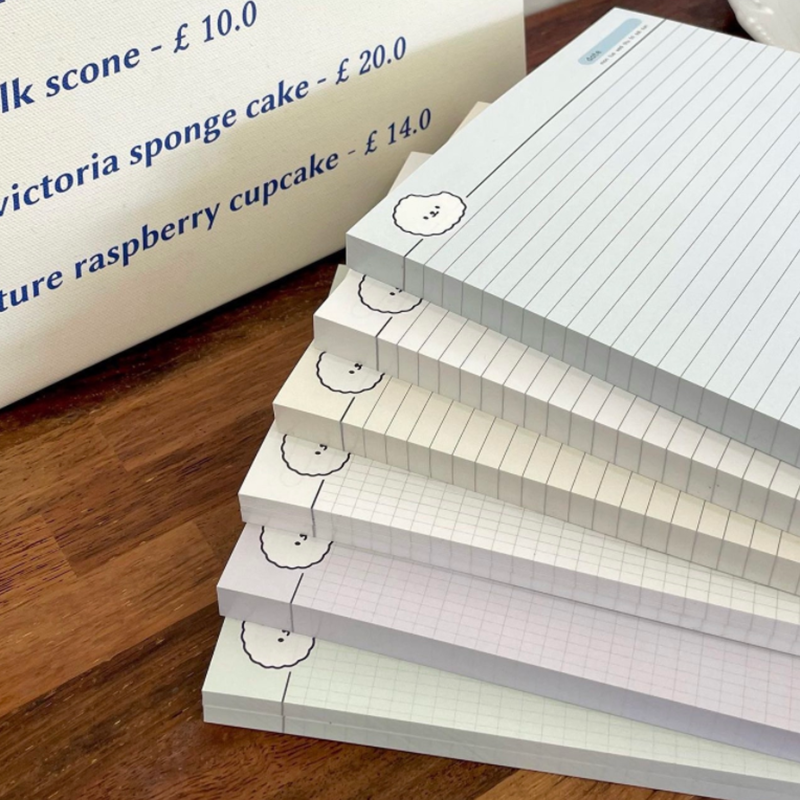 lk scone - £ 10.0
victoria sponge cake - £ 20.0
ture raspberry cupcake - £ 14.0
date